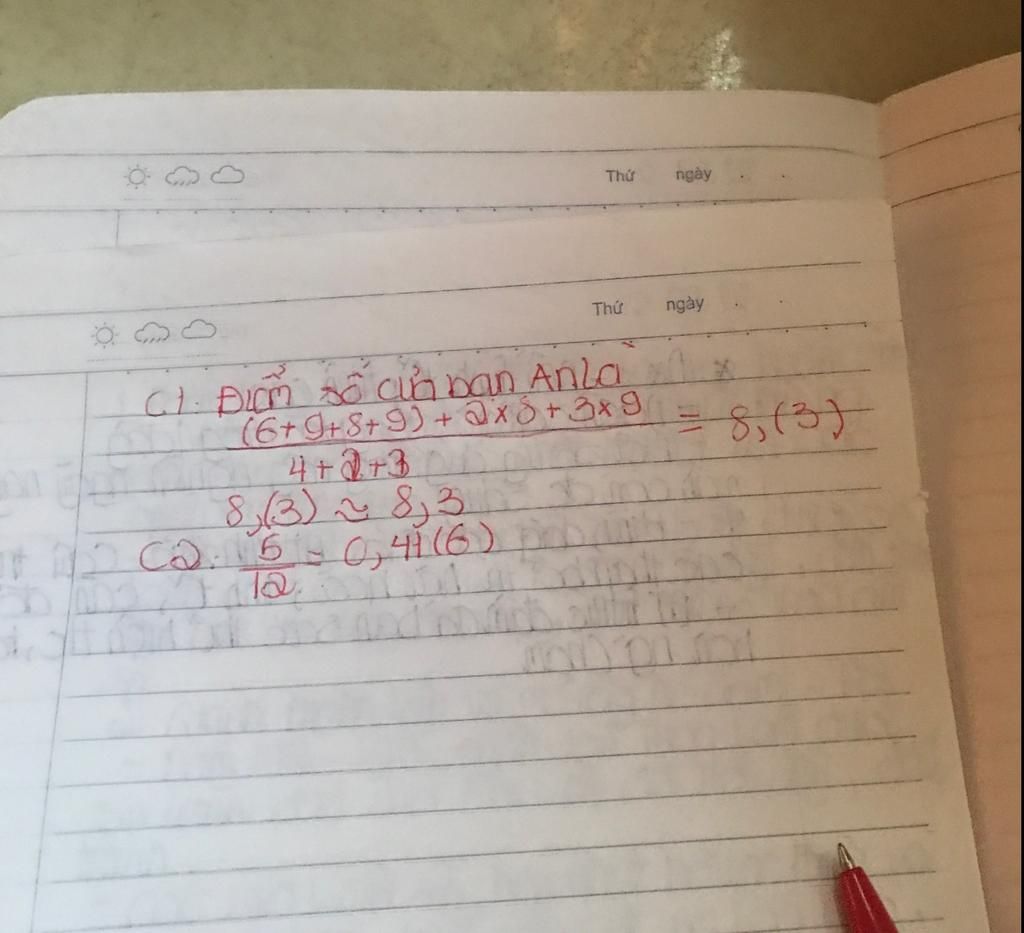 Thứ ngày
Thứ ngày
C1. Điểm số của bạn An là
(6+9+8+9) + 2×8 + 3×9 = 8,(3)
4+2+3
8,(3) ≈ 8,3
C2. 5 = 0,41(6)
12